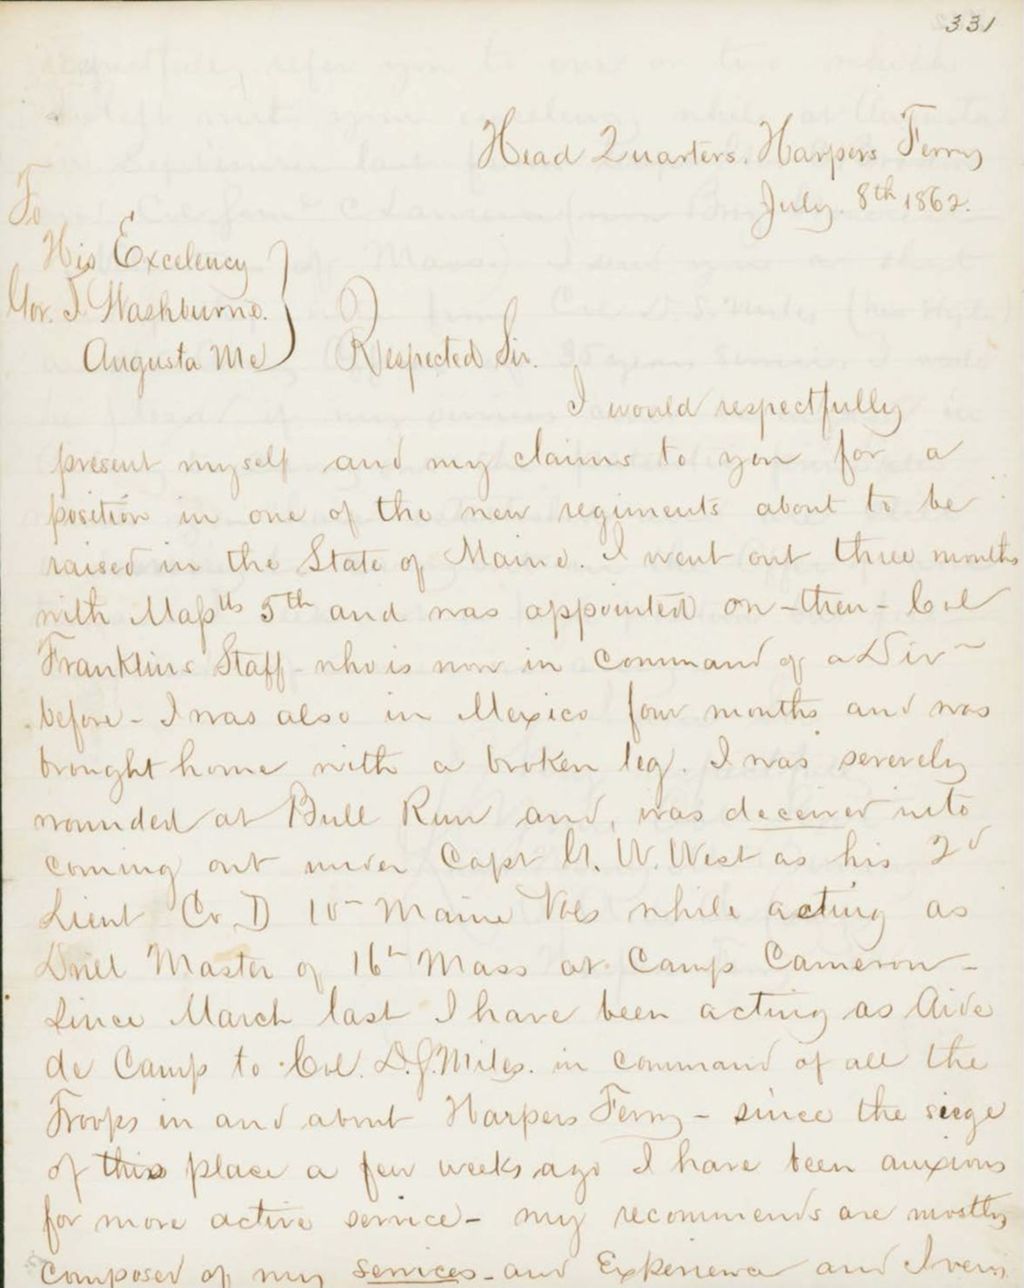 331
Head Quarters. Harpers Ferry
July. 8th 1862.
To
His Excelency
Gov. I Washburne.
Augusta Me
Respected Sir.
I would respectfully
present myself and my claims to you for a
position in one of the new regiments about to be
raised in the State of Maine. I went out three months
with Masstts 5th and was appointed on - then - Col
Franklins Staff - who is now in command of a Divn
before - I was also in Mexico four months and was
brought home with a broken leg. I was severely
wounded at Bull Run and, was deceived into
coming out under Capt G. W. West as his 2d
Lieut Co. D 10th Maine Vols while acting as
Drill Master of 16th Mass at Camp Cameron -
Since March last I have been acting as Aide
de Camp to Col. D.S. Miles. in command of all the
Troops in and about Harpers Ferry - since the siege
of this place a few weeks ago I have been anxious
for more active service - my recommends are mostly
composed of my services - and Experience and I very